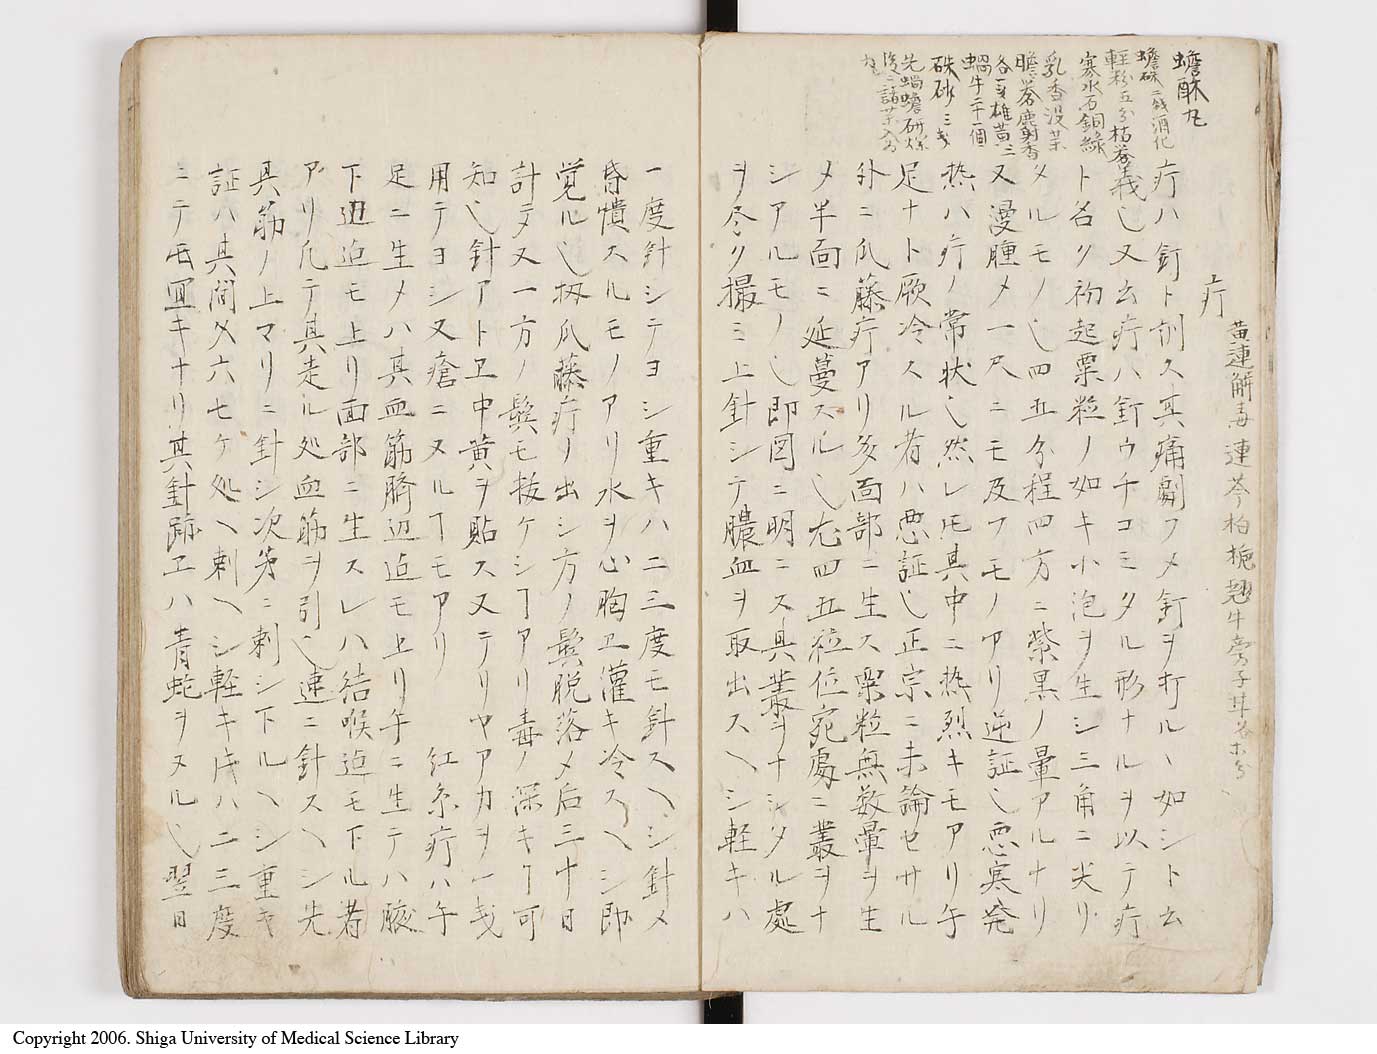 蟾酥丸
蟾酥二戔酒化
軽粉五分枯礬
寒水石銅緑
乳香没薬
胆礬麝香
各一匁雄黄二
蝸牛二十一個
硃砂三匁
先蝸蟾研爛
後ニ諸薬入
丸
疔 黄連解毒連芩柏梔翹牛旁子甘各
疔ハ釘ト訓ス其痛劇フメ釘ヲ打ルヽ如シト云
義乄又云疔ハ釘ウチコミタル形ナルヲ以テ疔
ト名ク初起粟粒ノ如キ小泡ヲ生シ三角ニ尖リ
タルモノ乄四五分程四方ニ紫黒ノ暈アルナリ
又漫腫メ一尺ニモ及フモノアリ逆証乄悪寒発
熱ハ疔ノ常状乄然レ𪜈其中ニ熱烈キモアリ午
足ナト厥冷スル者ハ悪証乄正宗ニ未論セサル
外ニ爪藤疔アリ多面部ニ生ス粟粒無数暈ヲ生
メ半面ニ延蔓スル乄尤四五粒位宛處ニ叢ヲナ
シアルモノ乄即図ニ明ニス具叢ヲナシタル處
ヲ尽ク撮ミ上針シテ膿血ヲ取出スヘシ軽キハ
一度針シテヨシ重キハ二三度モ針スヘシ針メ
昏憒スルモノアリ水ヲ心胸ヱ灌キ冷スヘシ即
覚ル乄扨爪藤疔リ出シ方ノ鬂脱落メ后三十日
計テ又一方ノ鬂モ抜ケシヿアリ毒ノ深キヿ可
知乄針アトヱ中黄ヲ貼ス又テリヤアカヲ一戔
用テヨシ又瘡ニヌルヿモアリ 紅糸疔ハ午
足ニ生メハ其血筋臍辺迫モ上リ午ニ生テハ腋
下迫迫モ上リ面部ニ生スレハ結喉迫モ下ル者
アリ凡テ其走ル処血筋ヲ引乄速ニ針スヘシ先
具筋ノ上マリニ針シ次第ニ刺シ下ルヘシ重キ
証ハ其間メ六七ケ処ヘ刺ヘシ軽キ𫝓ハ二三度
ニテモ冝キナリ其針跡ヱハ青蛇ヲヌル乄翌日
Copyright 2006. Shiga University of Medical Science Library